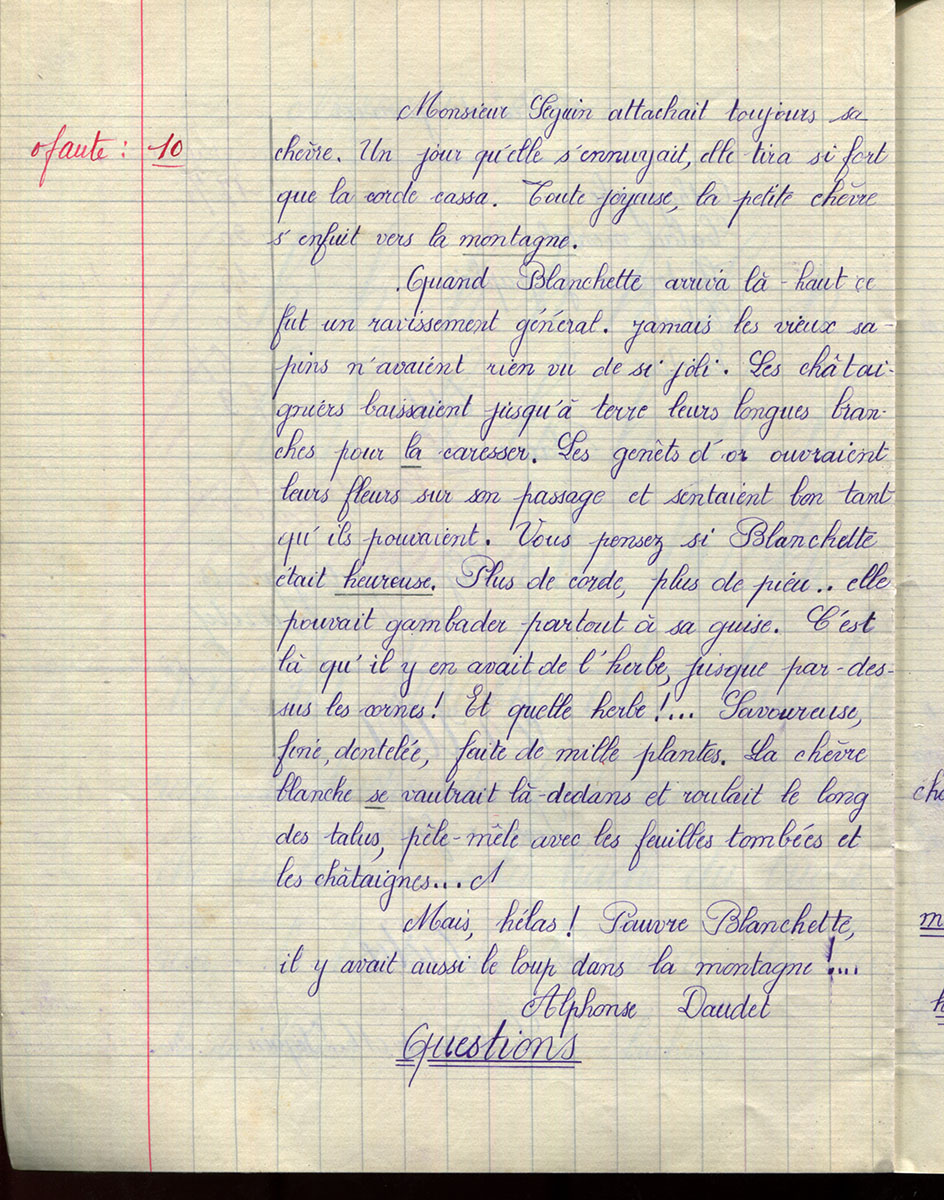 Monsieur Seguin attachait toujours sa
0 faute : 10
chèvre. Un jour qu'elle s'ennuyait, elle tira si fort
que la corde cassa. Toute joyeuse, la petite chèvre
s'enfuit vers la montagne.
Quand Blanchette arriva là-haut ce
fut un ravissement général. jamais les vieux sa-
pins n'avaient rien vu de si joli. Les châtai-
gniers baissaient jusqu'à terre leurs longues bran-
ches pour la caresser. Les genêts d'or ouvraient
leurs fleurs sur son passage et sentaient bon tant
qu'ils pouvaient. Vous pensez si Blanchette
était heureuse. Plus de corde, plus de pieu.. elle
pouvait gambader partout à sa guise. C'est
là qu'il y en avait de l'herbe, jusque par-des-
sus les cornes! Et quelle herbe!... Savoureuse,
fine, dentelée, faite de mille plantes. La chèvre
blanche se vautrait là-dedans et roulait le long
des talus, pêle-mêle avec les feuilles tombées et
les châtaignes...
Mais, hélas! Pauvre Blanchette,
il y avait aussi le loup dans la montagne!...
Alphonse Daudet
Questions